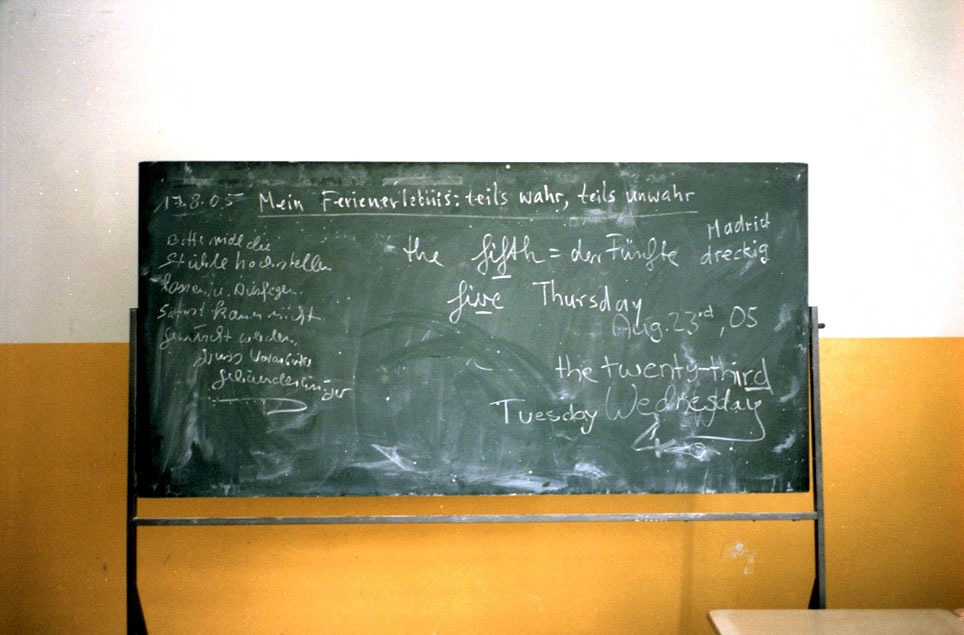 17.8.05 Mein Ferienerlebnis: teils wahr, teils unwahr
Bitte die
Stühle hochstellen
lassen u. Ausfegen.
Sonst kann nicht
geputzt werden.
Gruss
gebäudereiniger
the fifth = der Fünfte
Madrid
dreckig
five Thursday
Aug. 23rd, 05
the twenty-third
Tuesday Wednesday